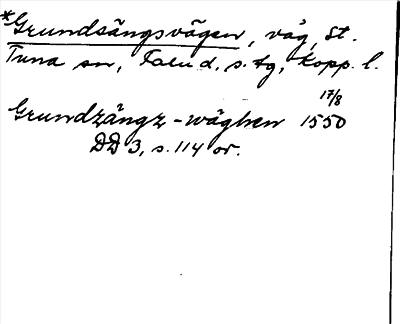 *Grundsängsvägen, väg, St.
Tuna sn, Falu d. s. tg, Kopp. l.
17/8
Grundzängz-wäghen 1550
DD 3, s. 114 or.